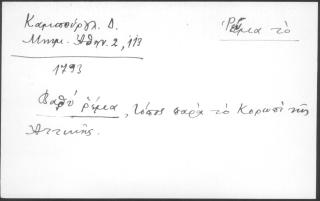 Καμπούρογλ. Δ.
Μνημ. Ἀθην. 2, 113
Ῥέμα τὸ
1793
Βαθὺ ῥέμα, τόπος παρὰ τὸ Κορωπὶ τῆς
Ἀττικῆς.